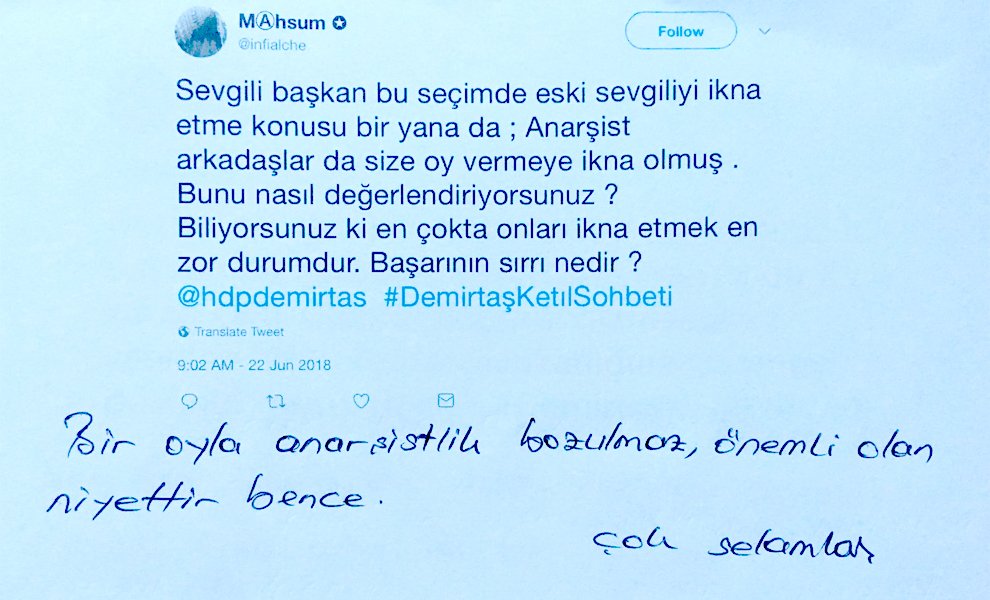 MⒶhsum ✪
@infialche
Follow
Sevgili başkan bu seçimde eski sevgiliyi ikna
etme konusu bir yana da ; Anarşist
arkadaşlar da size oy vermeye ikna olmuş .
Bunu nasıl değerlendiriyorsunuz ?
Biliyorsunuz ki en çokta onları ikna etmek en
zor durumdur. Başarının sırrı nedir ?
@hdpdemirtas #DemirtaşKetılSohbeti
Translate Tweet
9:02 AM - 22 Jun 2018
Bir oyla anarşistlik bozulmaz, önemli olan
niyettir bence.
çok selamlar